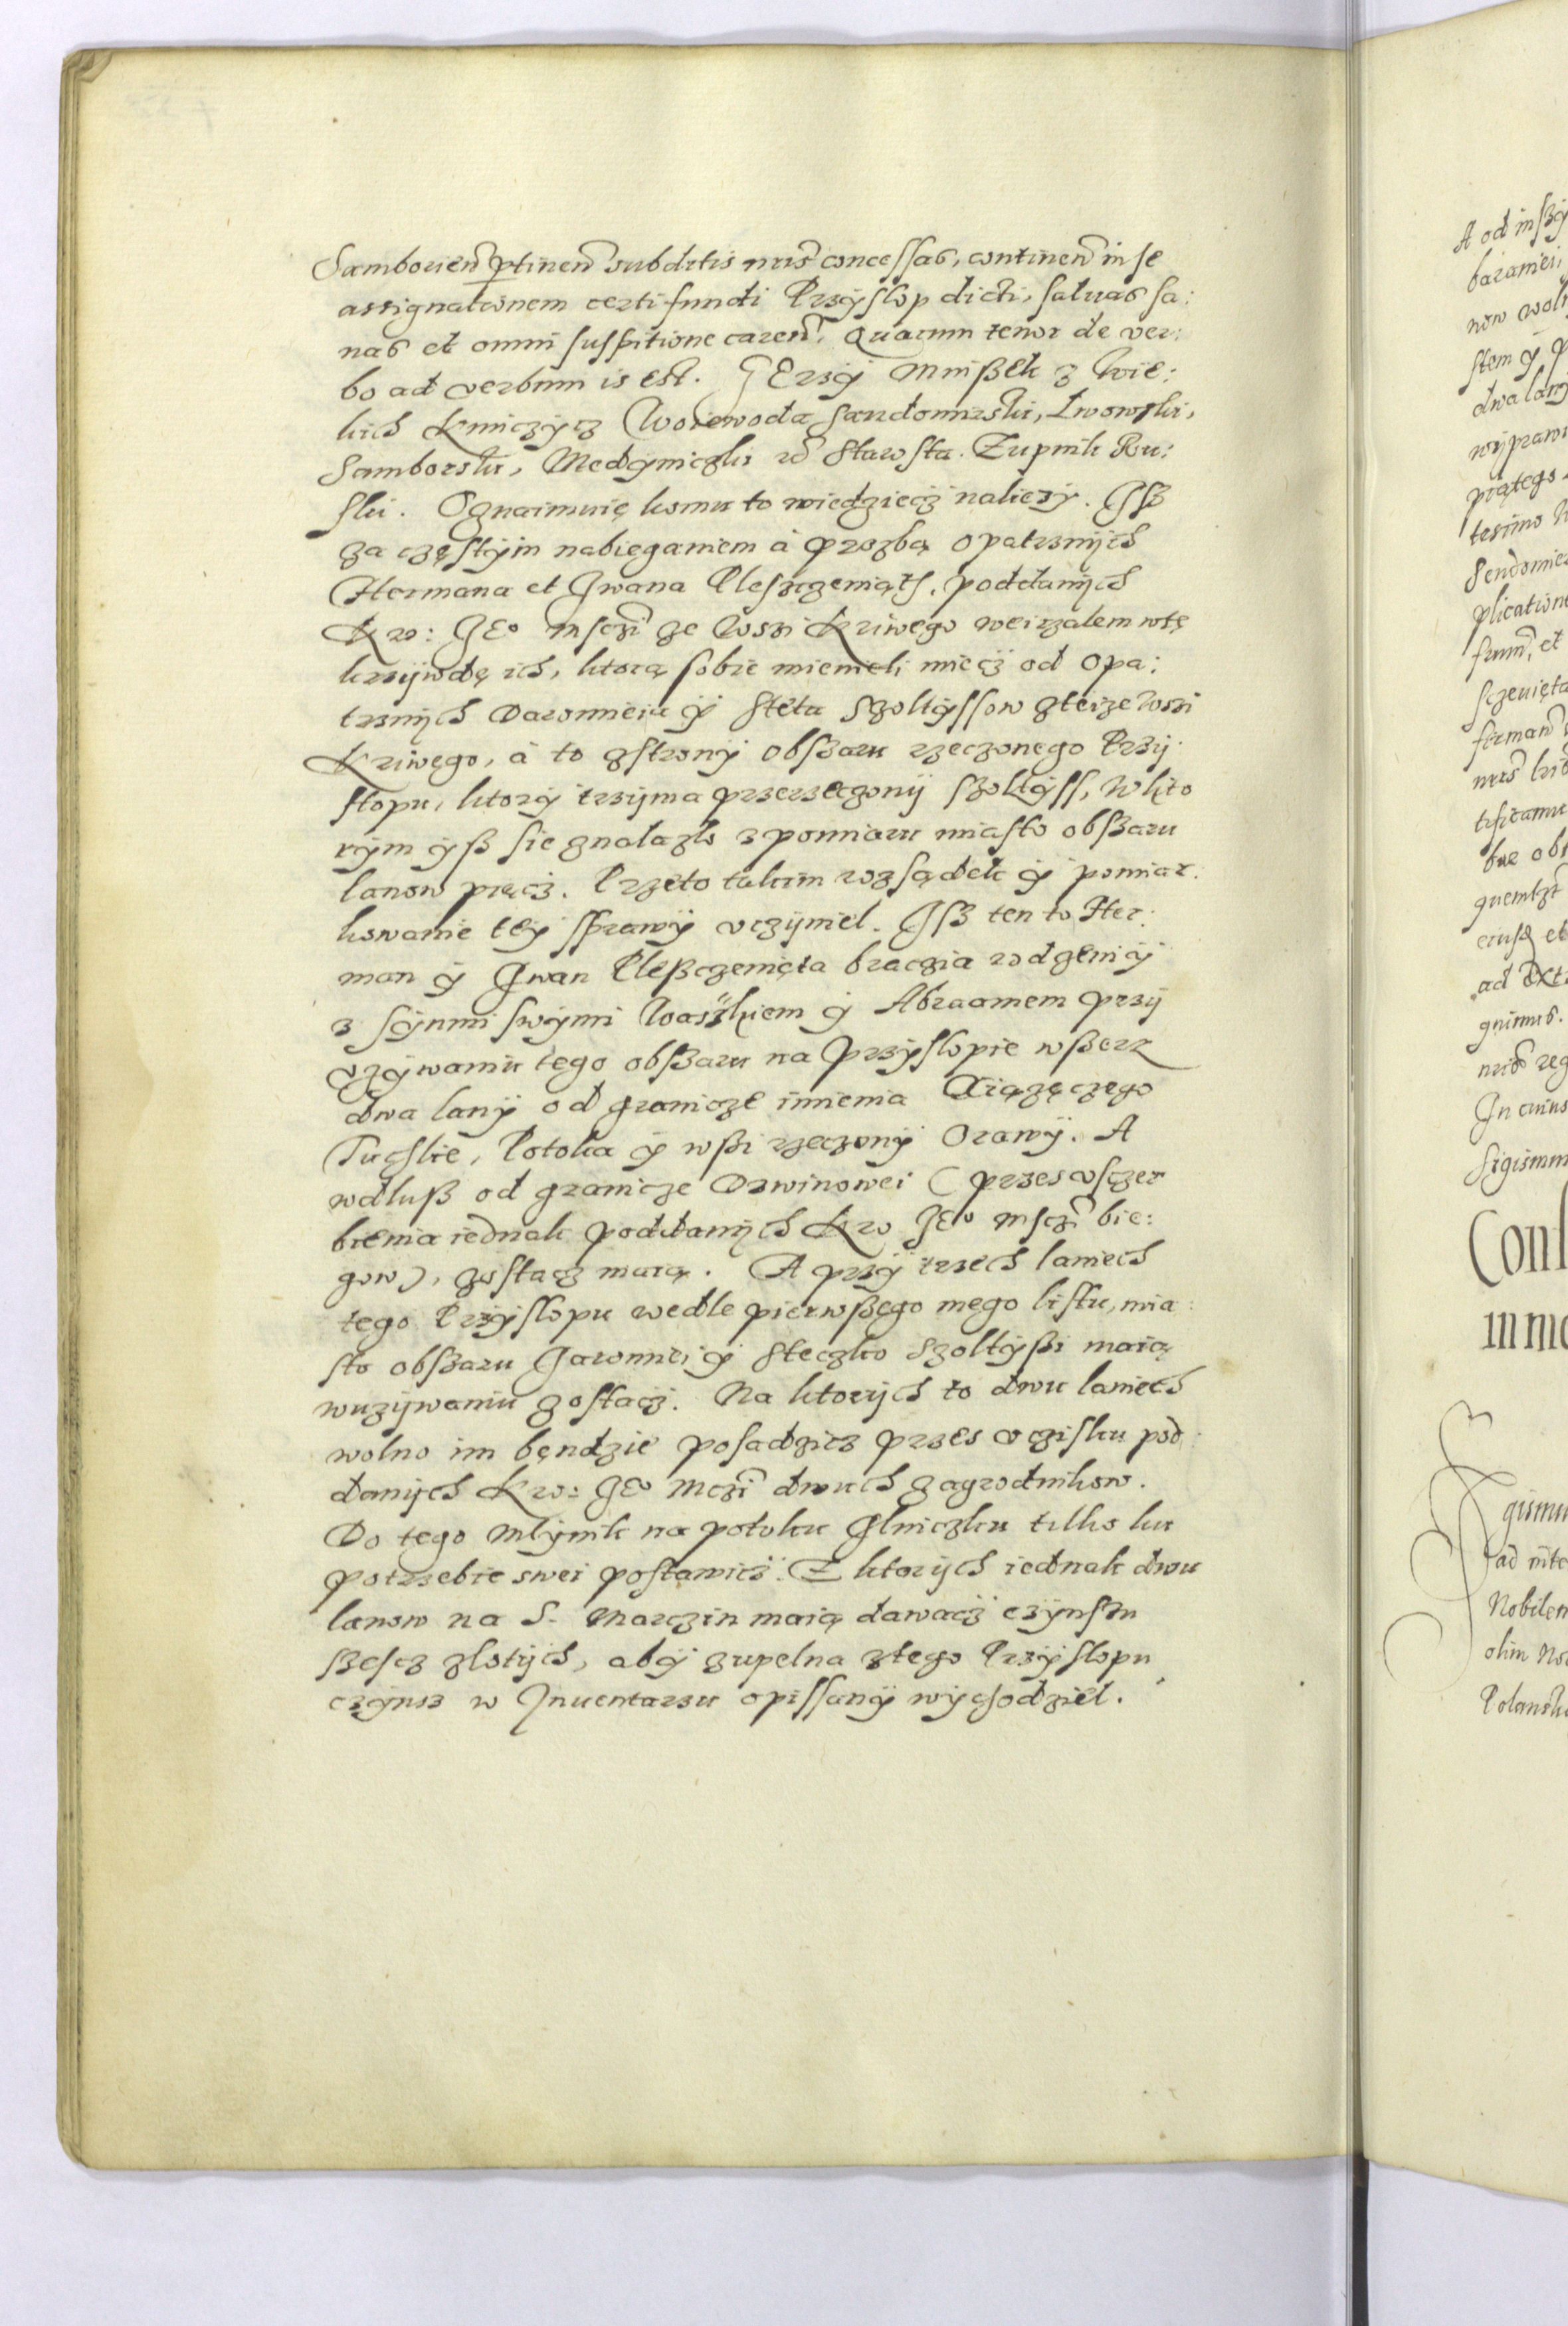 Samborien̄ ꝑtinen̄ subditis nr̄is concessas, continen̄ in se
assignationem certi fundi Przÿslop dicti, saluas sa:
nas et omni suspitione caren̄. Quarum tenor de ver:
bo ad verbum is est. Jerzÿ Mnißek z Wie:
kich Kunczÿcz Woiewoda Sandomirski, Lwowski,
Samborski, Medÿniczki etc̄ Starosta. Zupnik Ru:
ski. Oznaimuię komu to wiedziecz nalieżÿ. Isz
za częstÿm nabieganiem à prozbą opatrznÿch
Hermana et Iwana Pleszczeniąth, poddanÿch
Kro: Jeº Msczi ze Wszi Kriwego weirzalem wtę
krzÿwdę ich, ktorą sobie mienieli miecz od opa:
trznÿch Daromieia ÿ Steta Szoltÿssow zteize wszi
Kriwego, à to zstronÿ obszaru rzeczonego Przÿ
slopu, ktorÿ trzÿma przerzeczonÿ szoltÿss, W kto
rÿm ÿß sie znalazlo z pomiaru miasto obszaru
lanow pięcz. Przeto takim rozsądek ÿ pomiar.
kowanie teÿ sprawÿ vczÿniel. Isz ten to Her:
man ÿ Iwan Pleßczenięta braczia rodzeni ÿ
z sÿnmi swÿmi Waszkiem ÿ Abraamem przÿ
vzÿwaniu tego obszaru na Przÿslopie wßerz
dwa lanÿ od granicze imienia Xiązęczego
Tuchlie, Potoka ÿ wßi rzeczonÿ Orawÿ. A
wdluß od granicze Drwinowei (przes vsczer
bienia iednak poddanÿch Kro Jeº Msczi bie:
gow), zostacz maią. A przÿ trzech laniech
tego Przÿslopu wedle pierwßego mego listu, mia:
sto obszaru Jaromiei ÿ Steczko Szoltÿßi maią
wuzÿwaniu zostacz. Na ktorÿch to dwu laniech
wolno im będzie posadzicz przes vczisku pod
danÿch Kro: Jeº Mczi dwuch zagrodnikow.
Do tego Mlÿnik na potoku Ilniczku tilko ku
potrzebie swei postawicz. Z ktorÿch iednak dwu
lanow na S. Marczin maią dawacz czÿnszu
szescz zlotÿch, abÿ zupelna ztego Przÿslopu
czÿnsz w Inuentarzu opissanÿ wÿchodziel.